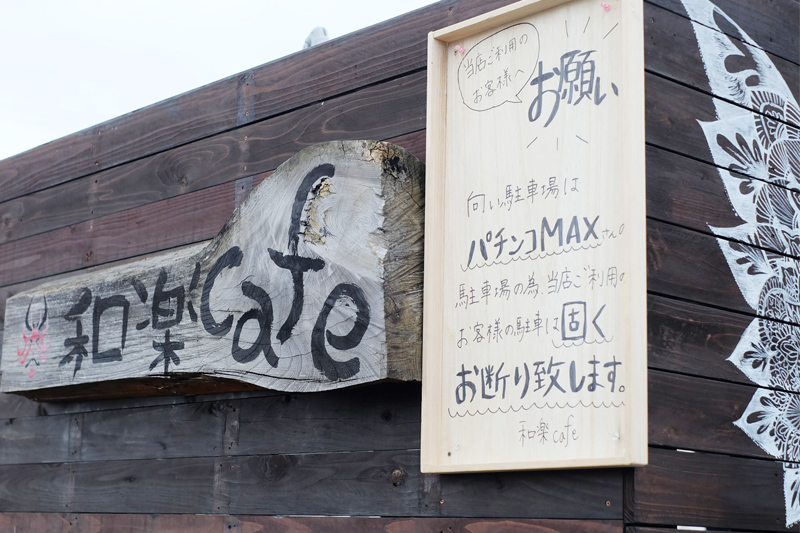 和楽cafe
当店ご利用の
お客様へ
お願い
向い駐車場は
パチンコMAXさんの
駐車場の為、当店ご利用の
お客様の駐車は固く
お断り致します。
和楽cafe